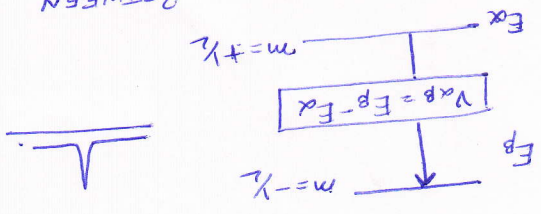 E_β m = -½
V_αβ = E_β - E_α
E_α m = +½
BETWEEN